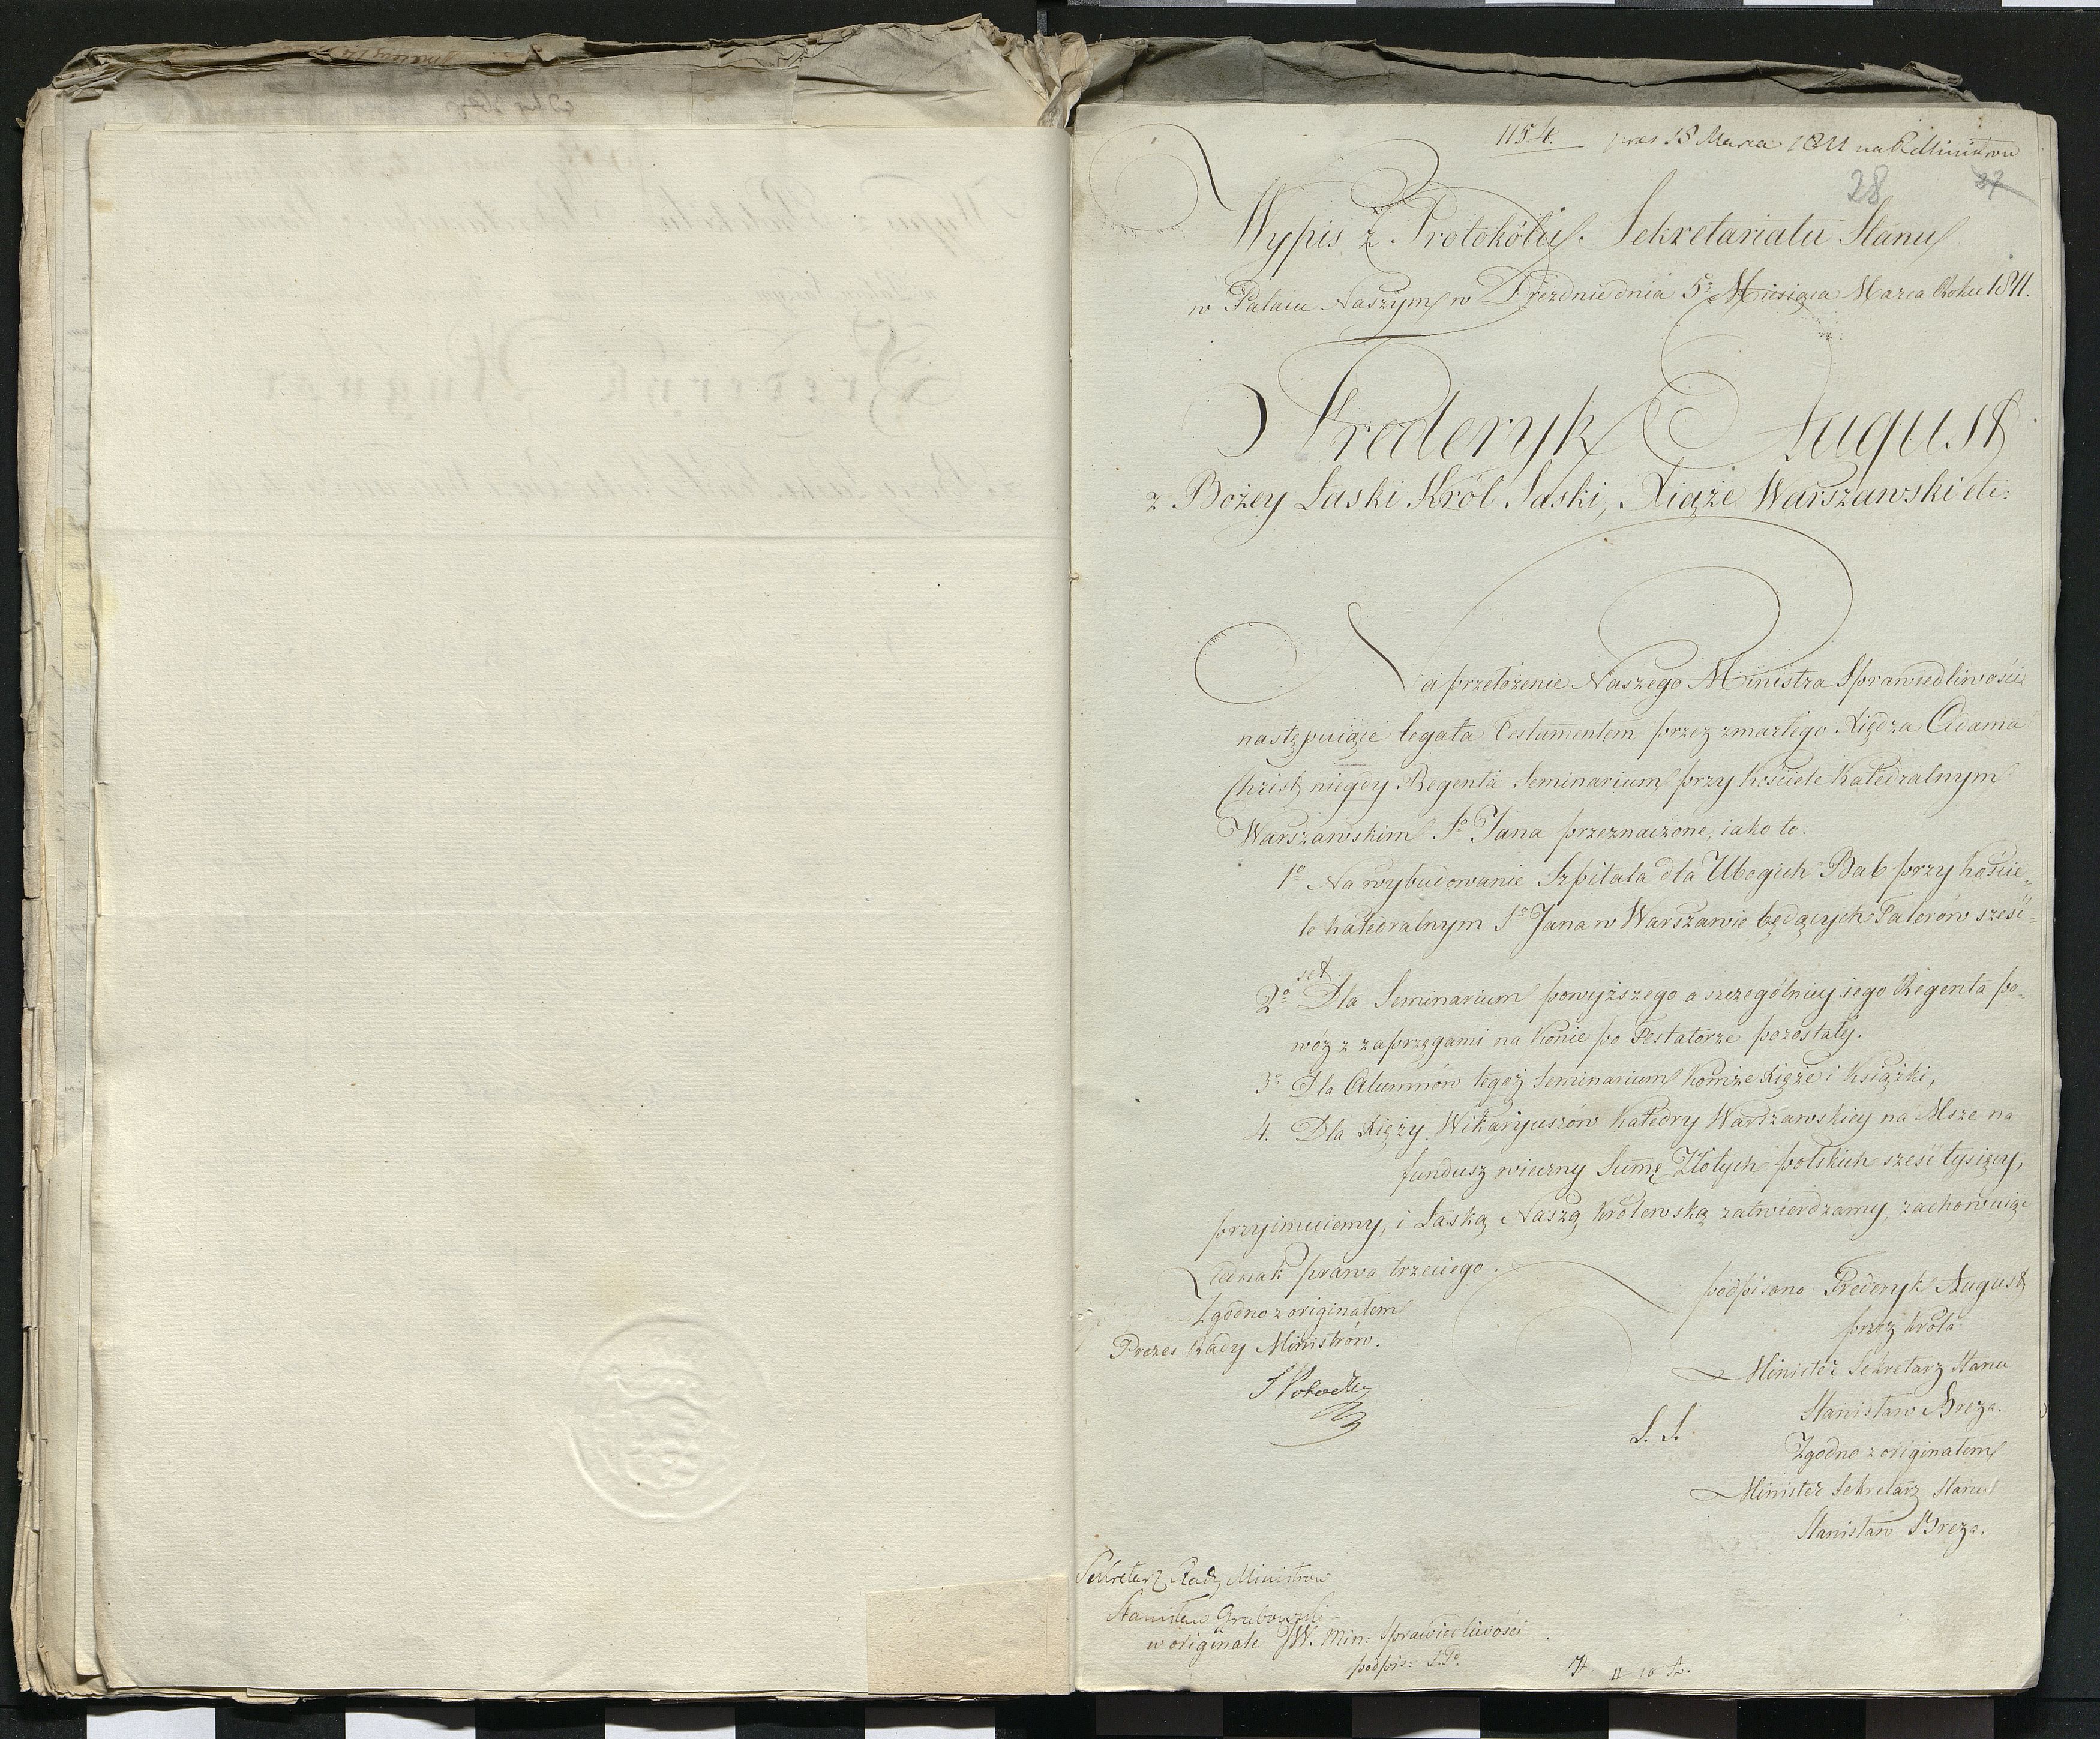 1154. prez 18 Marca 1811 na R. Ministrów
28 27
Wypis z Protokółu Sekretariatu Stanu
w Pałacu Naszym w Dreźnie dnia 5º Miesiąca Marca Roku 1811.
Frederyk August
z Bożey Łaski Król Saski, Xiąże Warszawski etc:
Na przełożenie Naszego Ministra Sprawiedliwości
następuiące legata Testamentem przez zmarłego Xiędza Adama
Christ niegdy Regenta Seminarium przy Kościele Katedralnym
Warszawskim Sº Jana przeznaczone, iako to:
1º Na wybudowanie Szpitala dla Ubogich Bab przy Koście-
le Katedralnym Sº Jana w Warszawie będących Talerów sześć-
set
2º Dla Seminarium powyższego a szczególniey iego Regenta po-
wóz z zaprzęgami na Konie po Testatorze pozostały.
3º Dla Alumnów tegoż Seminarium Komże Xięże i Książki,
4. Dla Xięży Wikaryuszów Katedry Warszawskiey na Msze na
fundusz wieczny Summę Złotych polskich sześć tysięcy,
przyimuiemy, i Łaską Naszą Królewską zatwierdzamy, zachowuiąc
iednak prawa trzeciego.
podpisano Frederyk August
przez Króla
Minister Sekretarz Stanu
Stanisław Breza.
L. S.
Zgodno z originałem
Minister Sekretarz Stanu
Stanisław Breza.
Zgodno z originałem
Prezes Rady Ministrów.
S Potocki
Sekretarz Rady Ministrów
Stanisław Grabowski
w originale JW. Min: Sprawiedliwości
podpis: